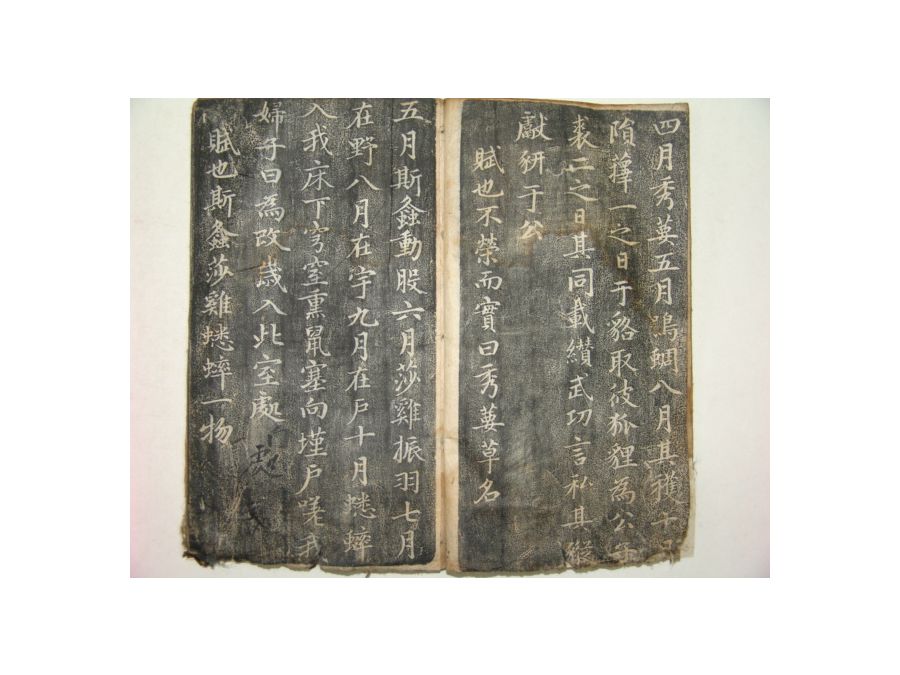 四月秀葽五月鳴蜩八月其穫十月
隕蘀一之日于貉取彼狐狸為公子
裘二之日其同載纘武功言私其豵
獻豜于公
賦也不榮而實曰秀葽草名
五月斯螽動股六月莎雞振羽七月
在野八月在宇九月在戶十月蟋蟀
入我床下穹室熏鼠塞向墐戶嗟我
婦子曰為改歲入此室處
賦也斯螽莎雞蟋蟀一物